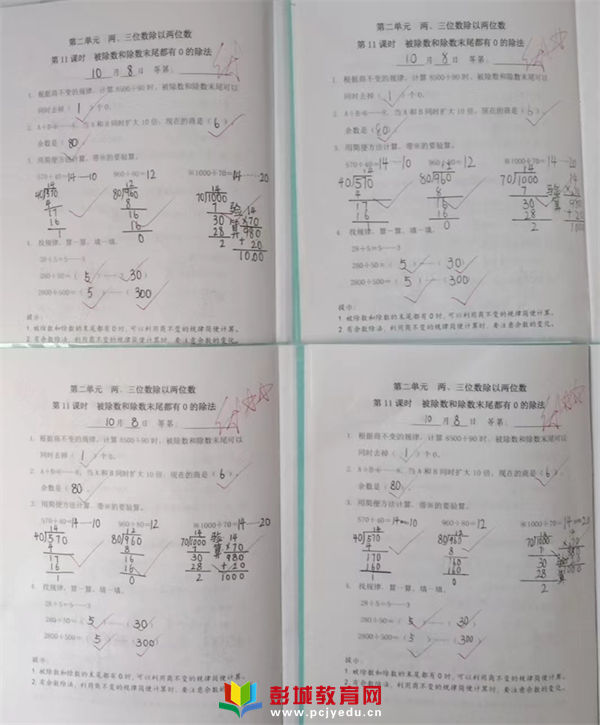 第二单元 两、三位数除以两位数
第11课时 被除数和除数末尾都有0的除法
10月8日 等第:
1. 根据商不变的规律,计算8500÷90时,被除数和除数可以
同时去掉(1)个0。
2. A÷B=6……8,当A和B同时扩大10倍,现在的商是(6),
余数是(80)
3. 用简便方法计算,带※的要验算。
570÷40=14……10 960÷80=12 ※1000÷70=14……20
4. 找规律,算一算,填一填。
28÷5=5……3
280÷50=(5)……(30)
2800÷500=(5)……(300)
提示:
1. 被除数和除数的末尾都有0时,可以利用商不变的规律简便计算。
2. 有余数除法,利用商不变的规律简便计算时,要注意余数的变化。
第二单元 两、三位数除以两位数
第11课时 被除数和除数末尾都有0的除法
10月8日 等第:
1. 根据商不变的规律,计算8500÷90时,被除数和除数可以
同时去掉(1)个0。
2. A÷B=6……8,当A和B同时扩大10倍,现在的商是(6),
余数是(80)
3. 用简便方法计算,带※的要验算。
570÷40=14……10 960÷80=12 ※1000÷70=14……20
4. 找规律,算一算,填一填。
28÷5=5……3
280÷50=(5)……(30)
2800÷500=(5)……(300)
提示:
1. 被除数和除数的末尾都有0时,可以利用商不变的规律简便计算。
2. 有余数除法,利用商不变的规律简便计算时,要注意余数的变化。
第二单元 两、三位数除以两位数
第11课时 被除数和除数末尾都有0的除法
10月8日 等第:
1. 根据商不变的规律,计算8500÷90时,被除数和除数可以
同时去掉(1)个0。
2. A÷B=6……8,当A和B同时扩大10倍,现在的商是(6),
余数是(80)
3. 用简便方法计算,带※的要验算。
570÷40=14……10 960÷80=12 ※1000÷70=14……20
4. 找规律,算一算,填一填。
28÷5=5……3
280÷50=(5)……(30)
2800÷500=(5)……(300)
提示:
1. 被除数和除数的末尾都有0时,可以利用商不变的规律简便计算。
2. 有余数除法,利用商不变的规律简便计算时,要注意余数的变化。
第二单元 两、三位数除以两位数
第11课时 被除数和除数末尾都有0的除法
10月8日 等第:
1. 根据商不变的规律,计算8500÷90时,被除数和除数可以
同时去掉(1)个0。
2. A÷B=6……8,当A和B同时扩大10倍,现在的商是(6),
余数是(80)
3. 用简便方法计算,带※的要验算。
570÷40=14……10 960÷80=12 ※1000÷70=14……20
4. 找规律,算一算,填一填。
28÷5=5……3
280÷50=(5)……(30)
2800÷500=(5)……(300)
提示:
1. 被除数和除数的末尾都有0时,可以利用商不变的规律简便计算。
2. 有余数除法,利用商不变的规律简便计算时,要注意余数的变化。
彭城教育网
www.pcjyedu.cn